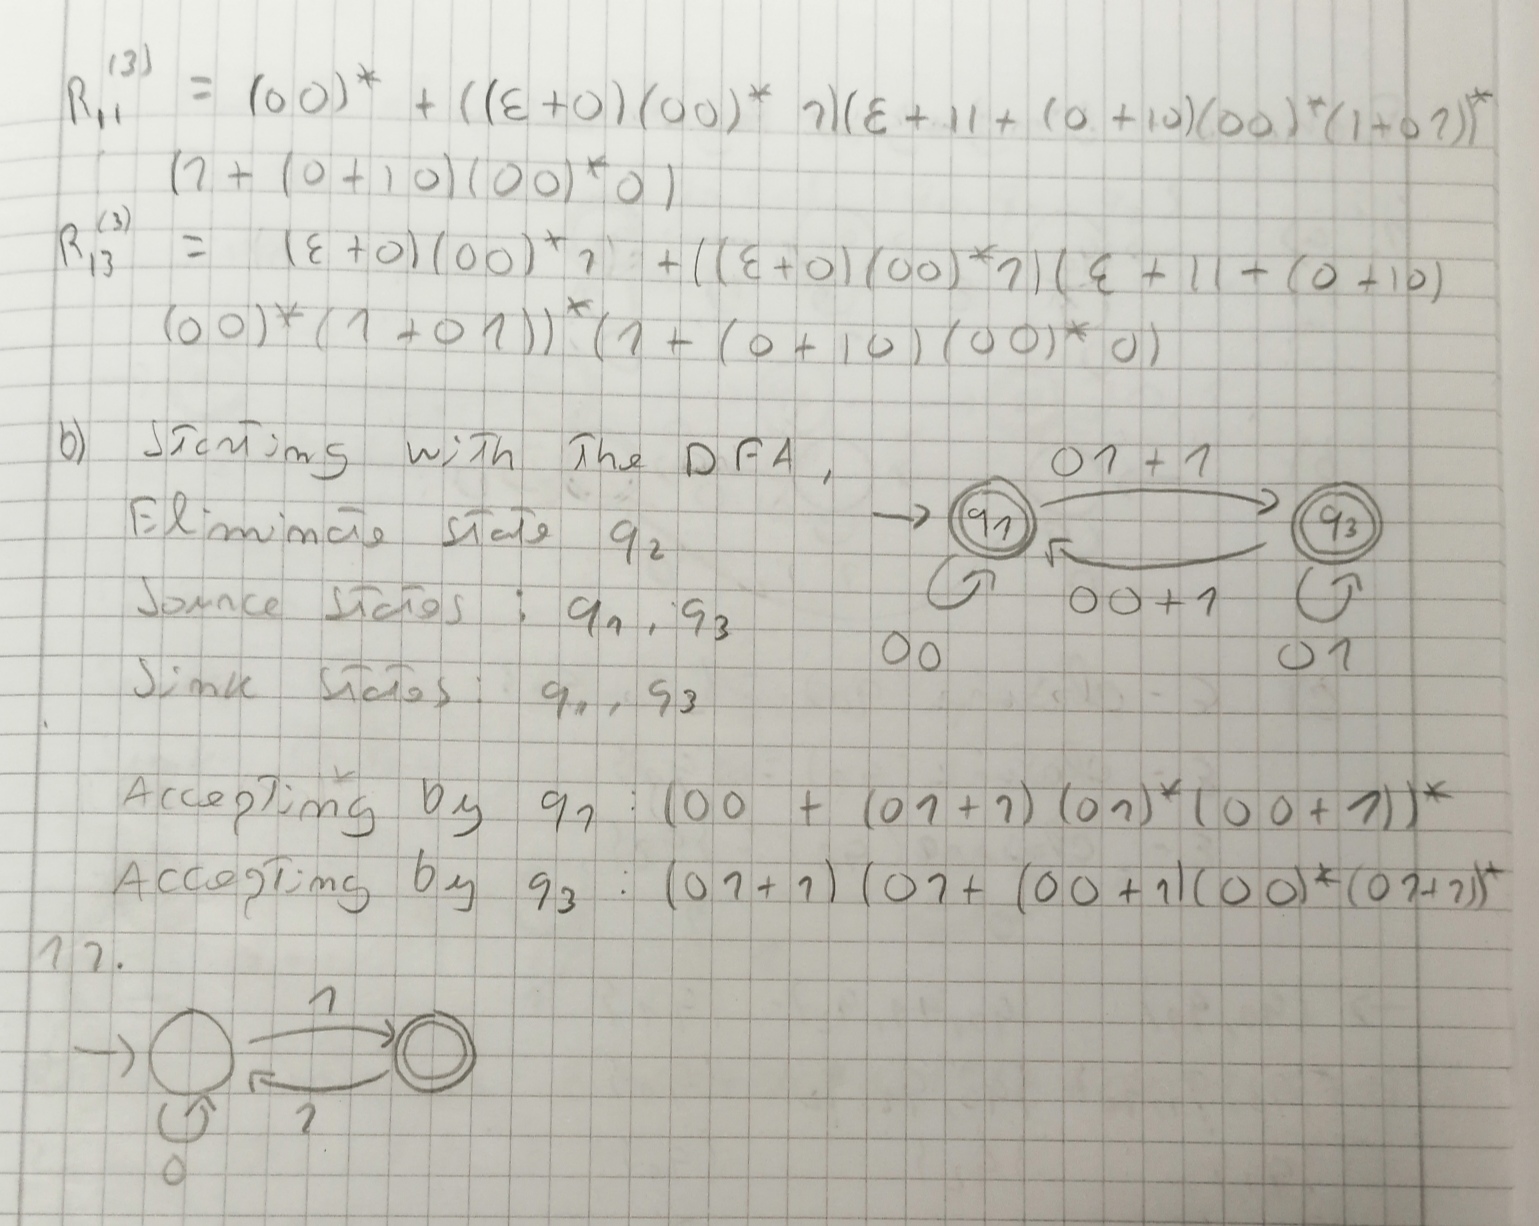 R₁₁⁽³⁾ = (00)* + ((ε+0)(00)* 1)(ε + 11 + (0+10)(00)*(1+01))*
(1 + (0+10)(00)*0)
R₁₃⁽³⁾ = (ε+0)(00)*1 + ((ε+0)(00)*1)(ε + 11 + (0+10)
(00)*(1+01))*(1 + (0+10)(00)*0)
b) Starting with the DFA,
Eliminate state q₂
Source states : q₁, q₃
Sink states : q₁, q₃
01+1
q₁ q₃
00+1
00 01
Accepting by q₁ : (00 + (01+1)(01)*(00+1))*
Accepting by q₃ : (01+1)(01+(00+1)(00)*(01+1))*
11.
1
1
0